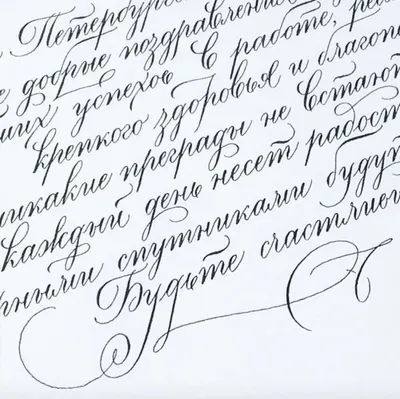 Петербург
добрые поздравлени
ших успехов в работе,
крепкого здоровья и благоп
никакие преграды не встают
каждый день несет радост
ными спутниками будут
Будьте счастливы